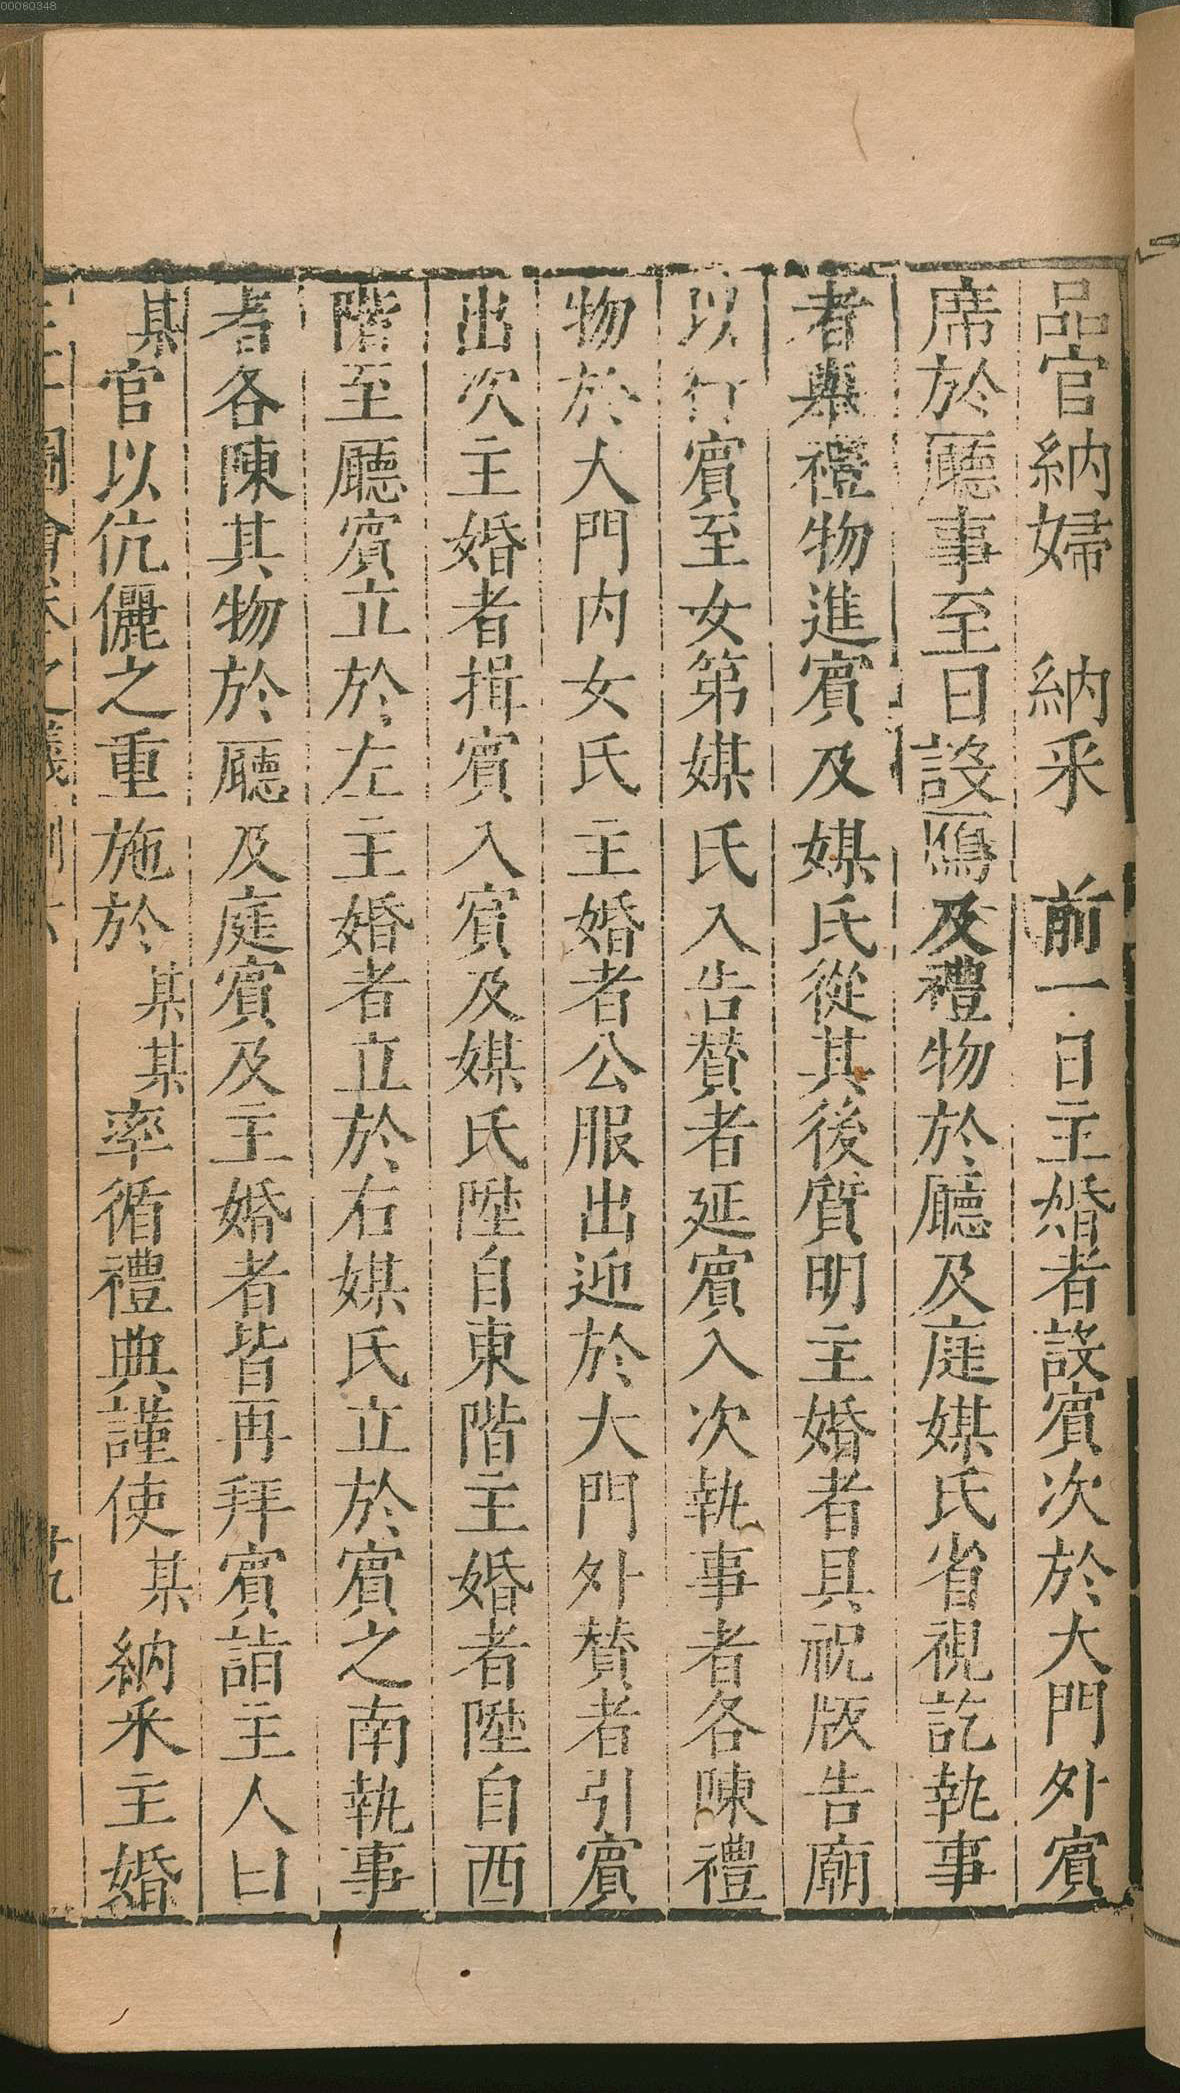 00060348
品官納婦　納采　前一日主婚者設賓次於大門外賓
席於廳事至日設鴈及禮物於廳及庭媒氏省視訖執事
者舉禮物進賓及媒氏從其後質明主婚者具祝版告廟
以行賓至女第媒氏入告贊者延賓入次執事者各陳禮
物於大門內女氏主婚者公服出迎於大門外贊者引賓
出次主婚者揖賓入賓及媒氏陞自東階主婚者陞自西
階至廳賓立於左主婚者立於右媒氏立於賓之南執事
者各陳其物於廳及庭賓及主婚者皆再拜賓詣主人曰
某官以伉儷之重施於某某率循禮典謹使某納采主婚